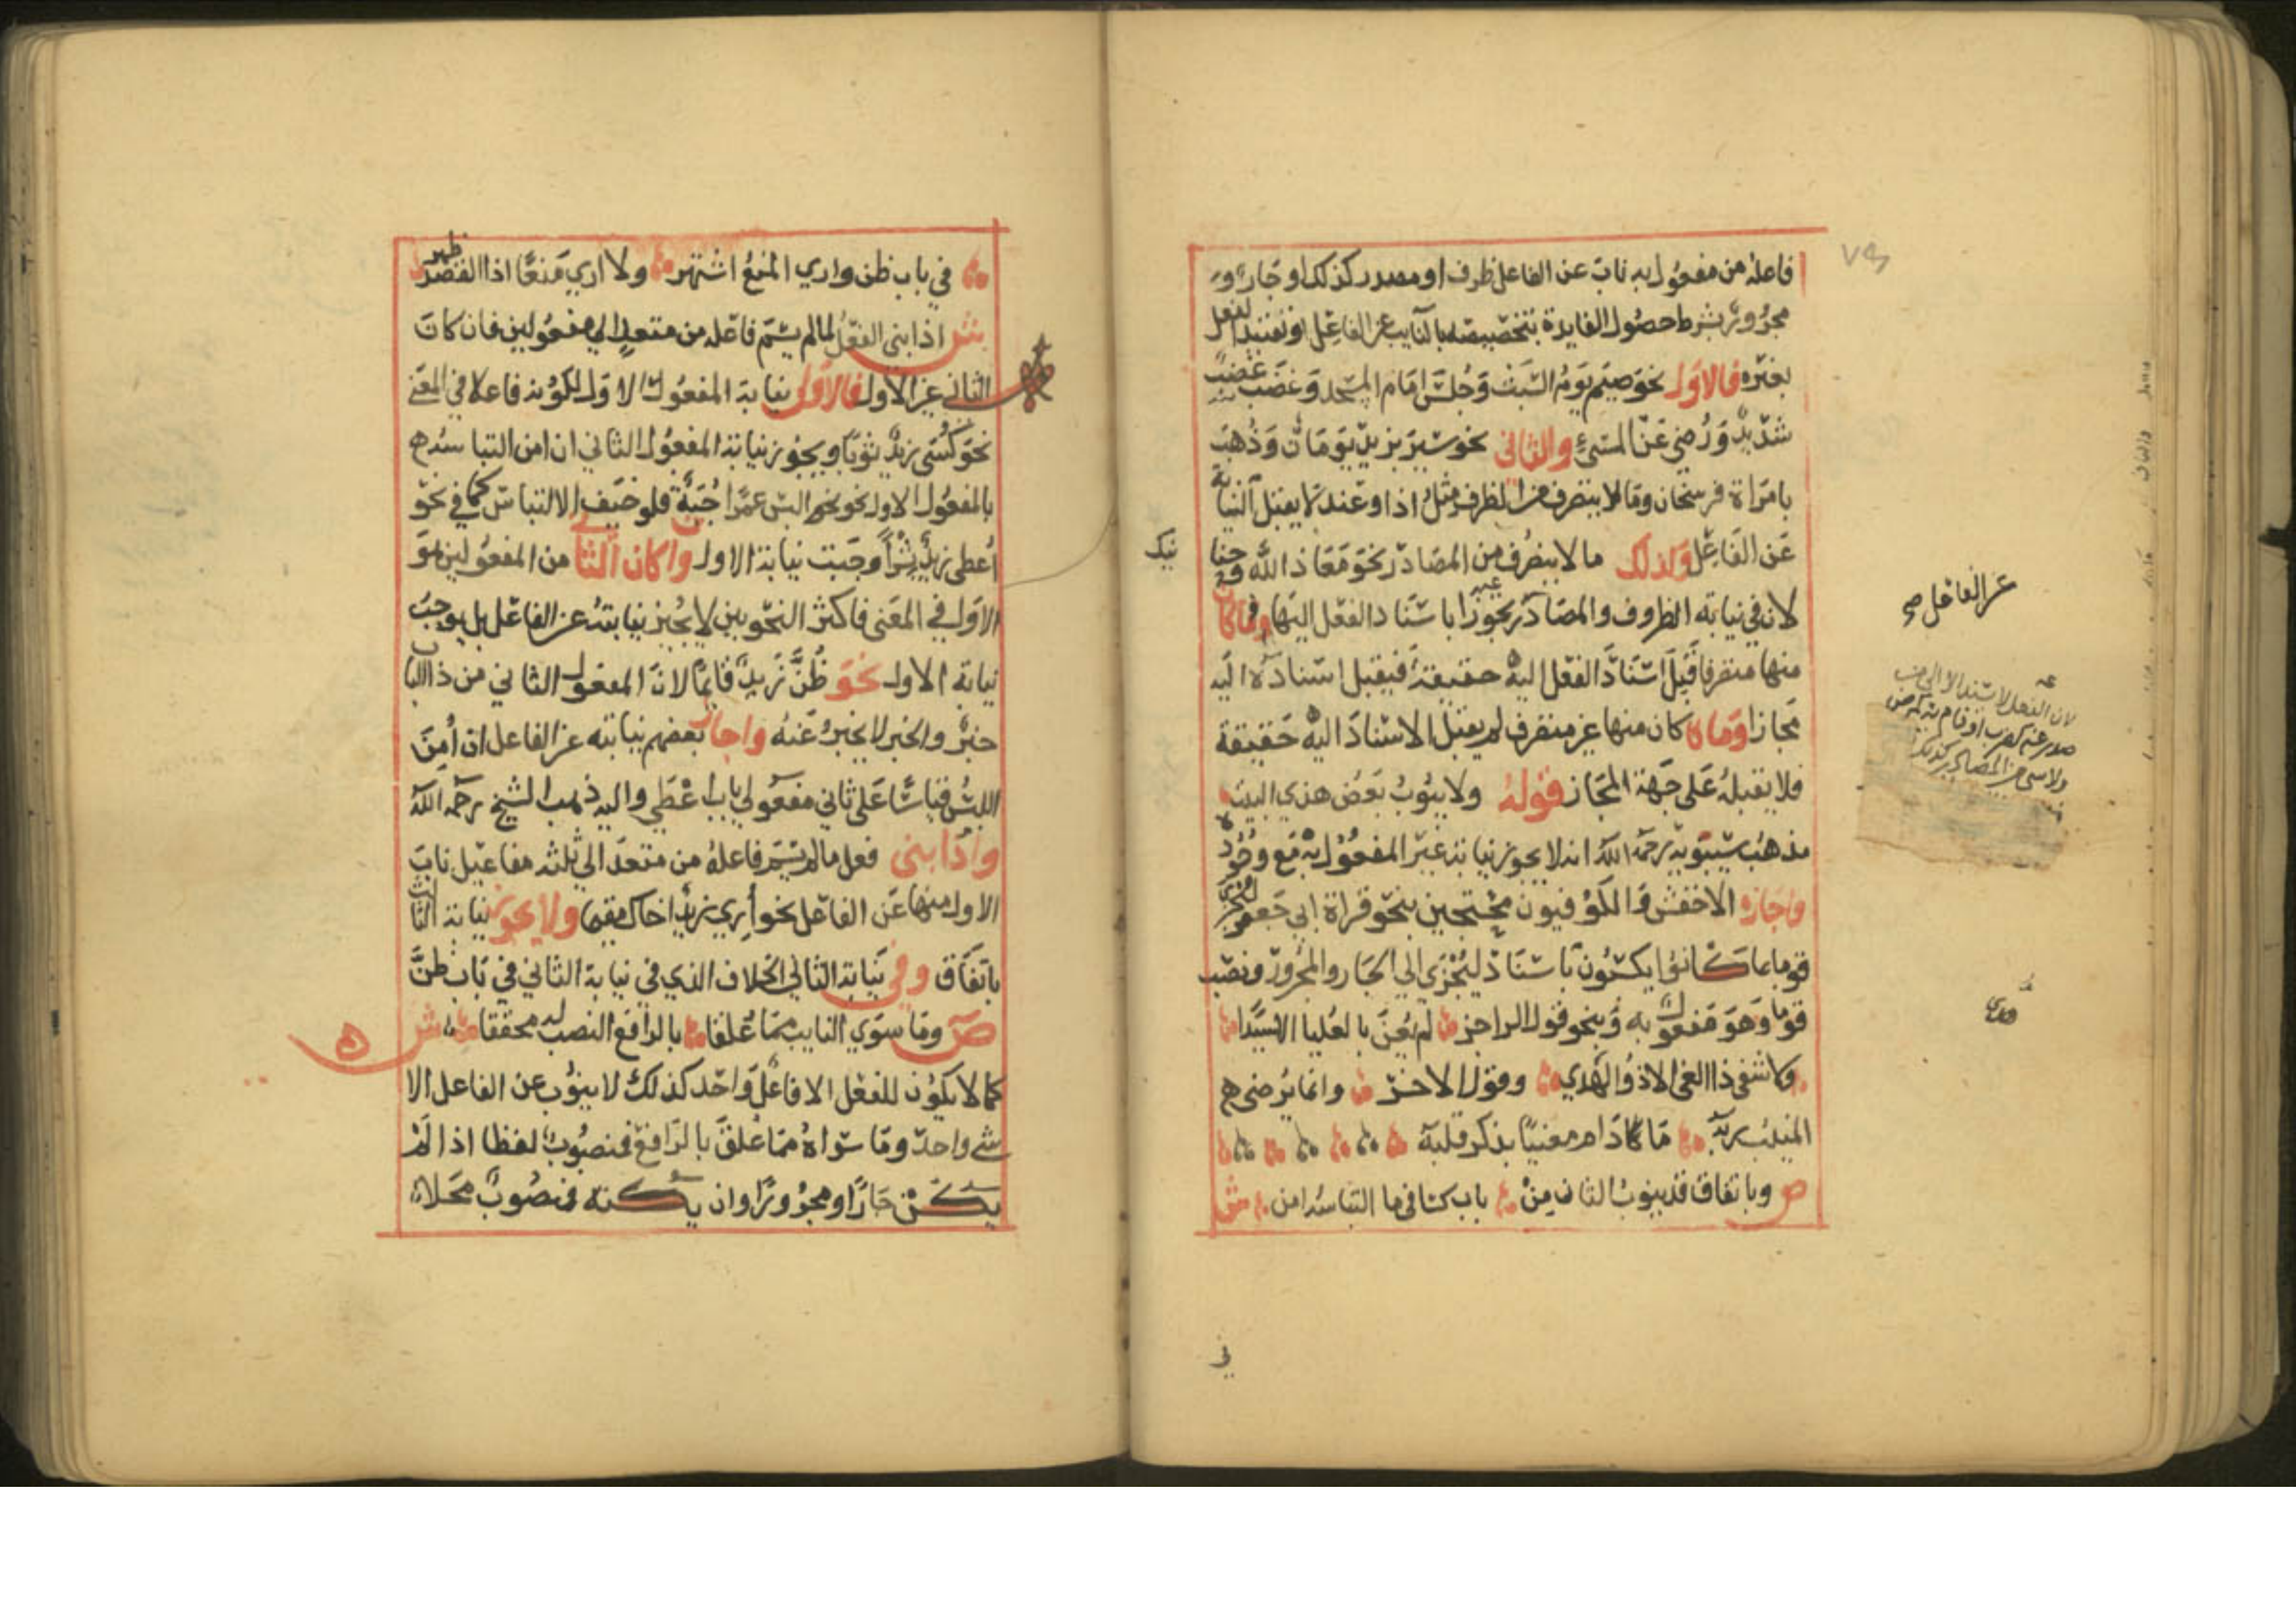 فاعله من مفعول به ناب عن الفاعل ظرف او مصدر كذلك او جار و
مجرور بشرط حصول الفايدة بتخصيصه بالنايب عن الفاعل او تقييد الفعل
بغيره فالاول نحو صيم يوم السبت وجلس امام المسجد وغضب غضب
شديد ورضي عن المسيء والثاني نحو سير بزيد يومان وذهب
بامراة فرسخان وما لا يتصرف من الظرف مثل اذا وعند لا يقبل النيابة
عن الفاعل وكذلك ما لا يتصرف من المصادر نحو معاذ الله
لان في نيابة الظروف والمصادر تجوزا باسناد الفعل اليها فما كان
منها متصرفا قبل اسناد الفعل اليه حقيقة فيقبل اسناده اليه
مجازا وما كان منها غير متصرف لم يقبل الاسناد اليه حقيقة
فلا يقبله على جهة المجاز قوله ولا ينوب بعض هذي البيت
مذهب سيبويه رحمه الله انه لا يجوز نيابة غير المفعول به مع وجوده
واجازه الاخفش والكوفيون محتجين بنحو قراة ابي جعفر ليجزي
قوما بما كانوا يكسبون باسناد ليجزى الى الجار والمجرور ونصب
قوما وهو مفعول به وبنحو قول الراجز لم يعن بالعليا الا سيدا
ولا شفى ذا الغي الا ذو الهدي وقول الاخر وانما يرضي
المنيب ربه ما دام معنيا بذكر قلبه
ص وباتفاق قد ينوب الثان من باب كسا فيما التباسه امن ش
عن الفاعل صح
في
في باب ظن واري المنع اشتهر ولا اري منعا اذا القصد ظهر
ش اذا بني الفعل لما لم يسم فاعله من متعد الي مفعولين فان كان
الثاني غير الاول فالاول نيابة المفعول الاول لكونه فاعلا في المعنى
نحو كسى زيد ثوبا ويجوز نيابة المفعول الثاني ان امن التباسه
بالمفعول الاول نحو البس عمرا جبة فلو خيف الالتباس كما في نحو
اعطى زيد بشرا وجبت نيابة الاول وان كان الثاني من المفعولين هو
الاول في المعنى فاكثر النحويين لا يجيز نيابته عن الفاعل بل يوجب
نيابة الاول نحو ظن زيد قايما لان المفعول الثاني من ذا الباب
خبر والخبر لا يخبر عنه واجاز بعضهم نيابته عن الفاعل ان امن
اللبس قياسا على ثاني مفعولي باب اعطى واليه ذهب الشيخ رحمه الله
واذا بني فعل ما لم يسم فاعله من متعد الي ثلثة مفاعيل ناب
الاول منها عن الفاعل نحو اري زيد اخاك مقيما ولا يجوز نيابة الثالث
باتفاق وفي نيابة الثاني الخلاف الذي في نيابة الثاني في باب ظن
ص وما سوي النايب مما علقا بالرافع النصب له محققا ش
كما لا يكون للفعل الا فاعل واحد كذلك لا ينوب عن الفاعل الا
شي واحد وما سواه مما علق بالرافع فمنصوب لفظا اذا لم
يكن جارا ومجرورا وان يكنه فمنصوب محلا